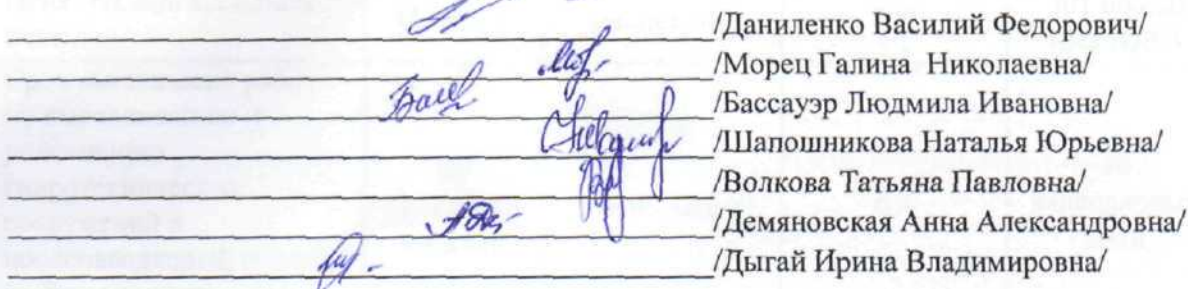 /Даниленко Василий Федорович/
/Морец Галина Николаевна/
/Бассауэр Людмила Ивановна/
/Шапошникова Наталья Юрьевна/
/Волкова Татьяна Павловна/
/Демяновская Анна Александровна/
/Дыгай Ирина Владимировна/